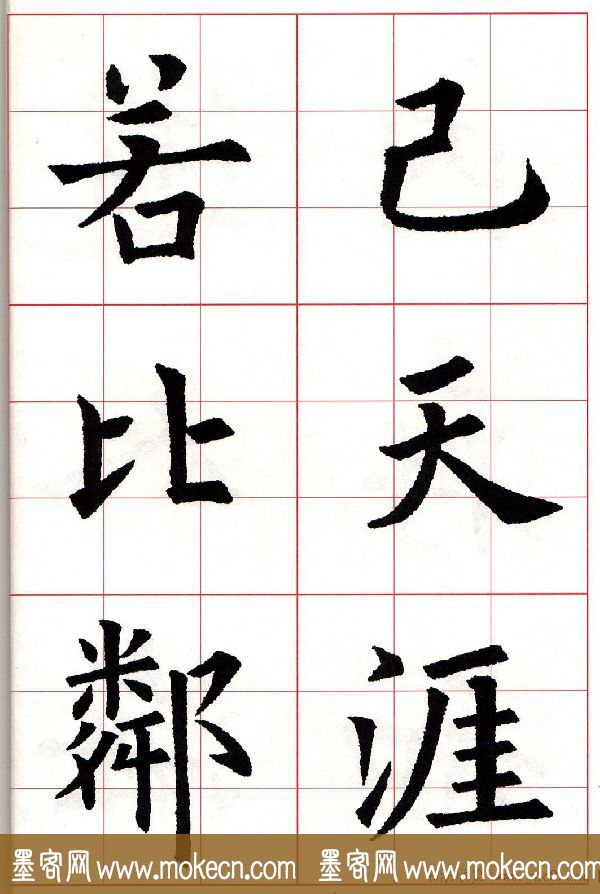 己天涯
若比鄰
墨客网 www.mokecn.com 墨客网 www.mokecn.com